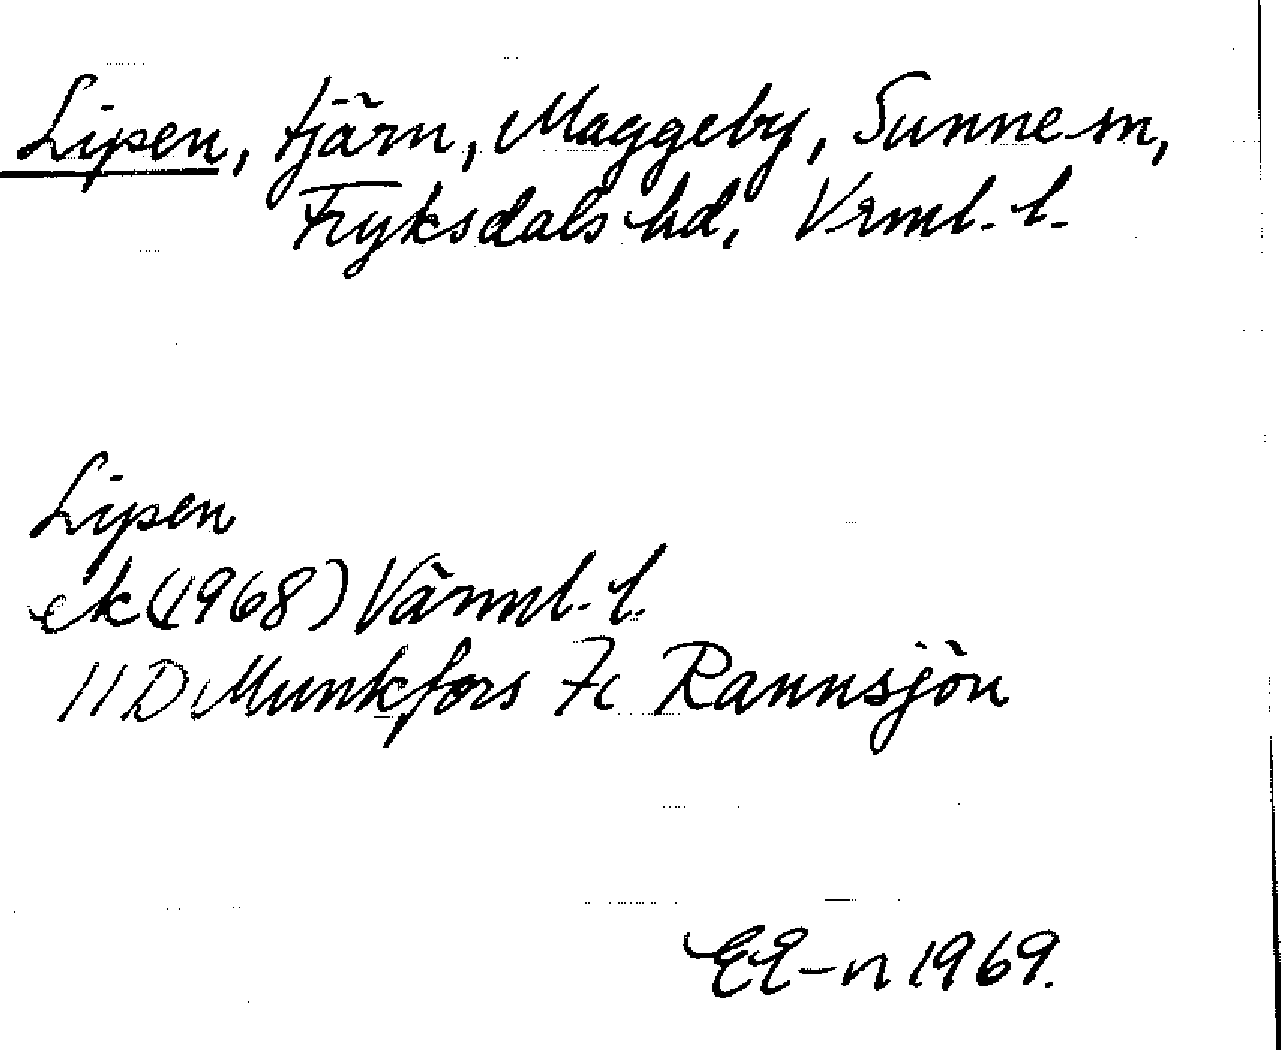 Lipen, tjärn, Maggeby, Sunne sn,
Fryksdals hd, Vrml. l.
Lipen
ek (1968) Värml. l.
11D Munkfors 7c Rannsjön
EE-n 1969.